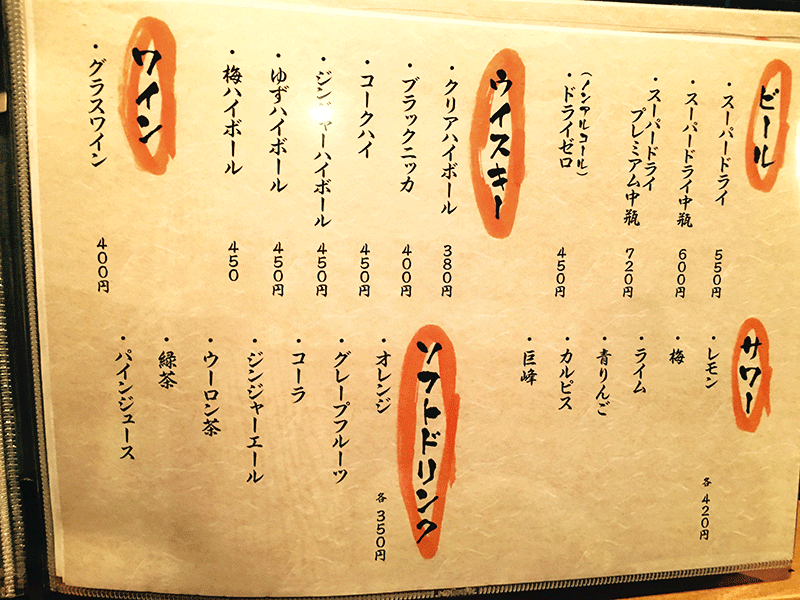 ビール
・スーパードライ 550円
・スーパードライ中瓶 600円
・スーパードライ
プレミアム中瓶 720円
(ノンアルコール)
・ドライゼロ 450円
ウイスキー
・クリアハイボール 380円
・ブラックニッカ 400円
・コークハイ 450円
・ジンジャーハイボール 450円
・ゆずハイボール 450円
・梅ハイボール 450
ワイン
・グラスワイン 400円
サワー
・レモン 各420円
・梅
・ライム
・青りんご
・カルピス
・巨峰
ソフトドリンク
・オレンジ 各350円
・グレープフルーツ
・コーラ
・ジンジャーエール
・ウーロン茶
・緑茶
・パインジュース